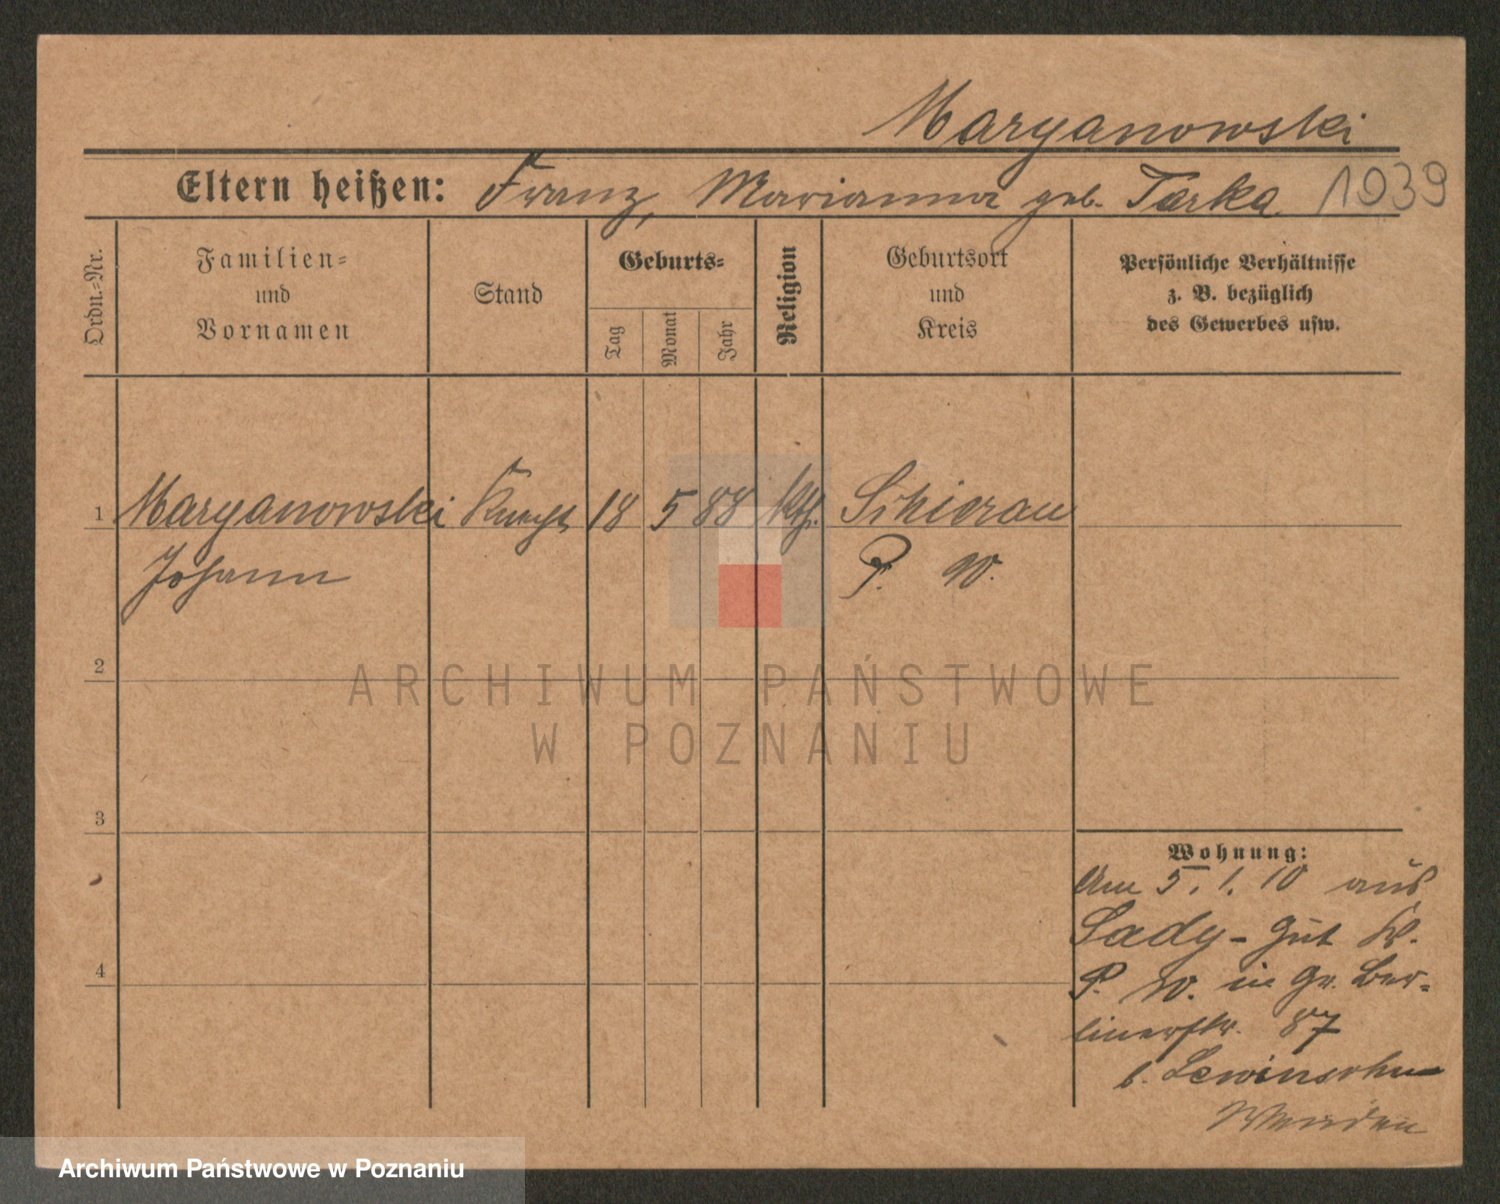 Maryanowski
Eltern heißen: Franz, Marianna geb. Tarka 1039
Ordn.-Nr.
Familien-
und
Vornamen
Stand
Geburts-
Tag
Monat
Jahr
Religion
Geburtsort
und
Kreis
Persönliche Verhältnisse
z. B. bezüglich
des Gewerbes usw.
1 Maryanowski Knecht 18 5 88 kth. Schierau
Johann P. W.
2
3
4
Wohnung:
Am 5. 1. 10 aus
Sady- Gut K.
P. W. in Gr. Ber-
linerstr. 87
b. Lewinsohn
ARCHIWUM PAŃSTWOWE
W POZNANIU
Archiwum Państwowe w Poznaniu